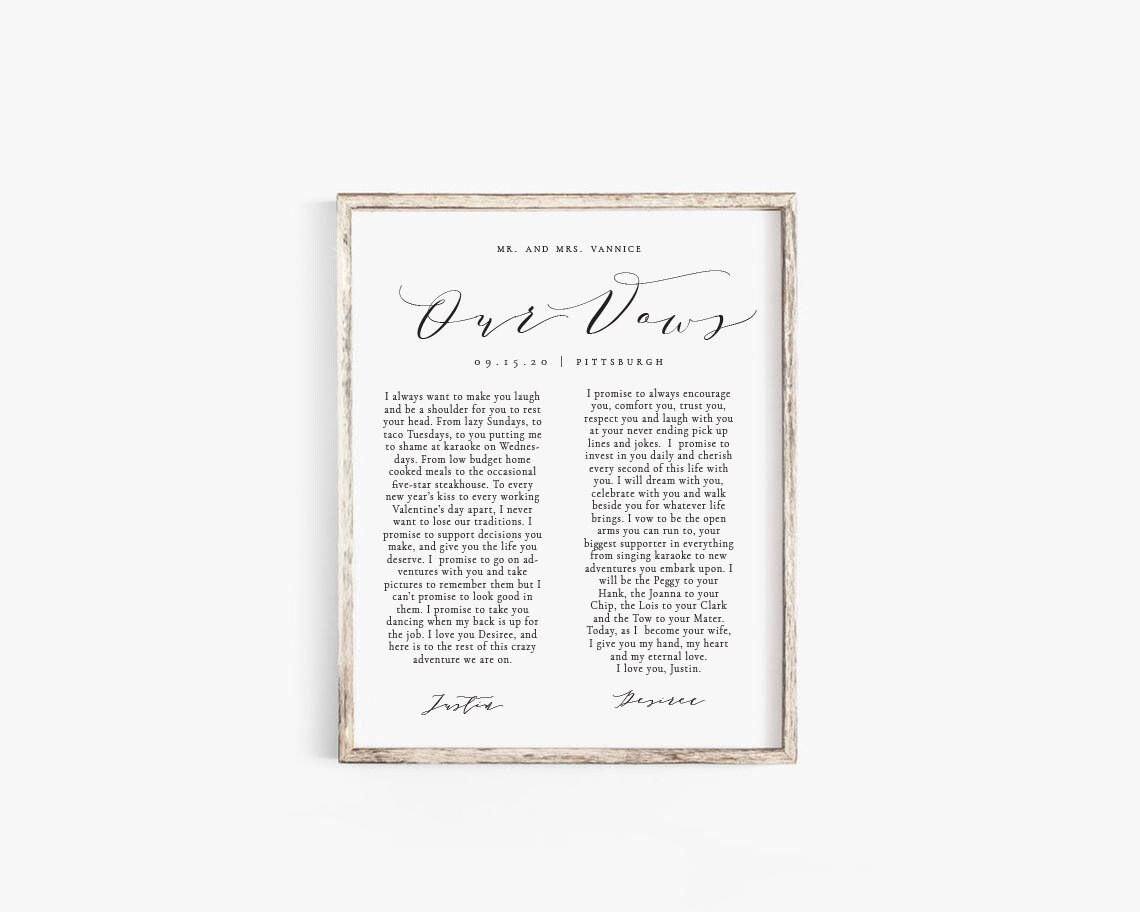 MR. AND MRS. VANNICE
Our Vows
09.15.20 | PITTSBURGH
I always want to make you laugh
and be a shoulder for you to rest
your head. From lazy Sundays, to
taco Tuesdays, to you putting me
to shame at karaoke on Wednes-
days. From low budget home
cooked meals to the occasional
five-star steakhouse. To every
new year's kiss to every working
Valentine's day apart, I never
want to lose our traditions. I
promise to support decisions you
make, and give you the life you
deserve. I promise to go on ad-
ventures with you and take
pictures to remember them but I
can't promise to look good in
them. I promise to take you
dancing when my back is up for
the job. I love you Desiree, and
here is to the rest of this crazy
adventure we are on.
Justin
I promise to always encourage
you, comfort you, trust you,
respect you and laugh with you
at your never ending pick up
lines and jokes. I promise to
invest in you daily and cherish
every second of this life with
you. I will dream with you,
celebrate with you and walk
beside you for whatever life
brings. I vow to be the open
arms you can run to, your
biggest supporter in everything
from singing karaoke to new
adventures you embark upon. I
will be the Peggy to your
Hank, the Joanna to your
Chip, the Lois to your Clark
and the Tow to your Mater.
Today, as I become your wife,
I give you my hand, my heart
and my eternal love.
I love you, Justin.
Desiree